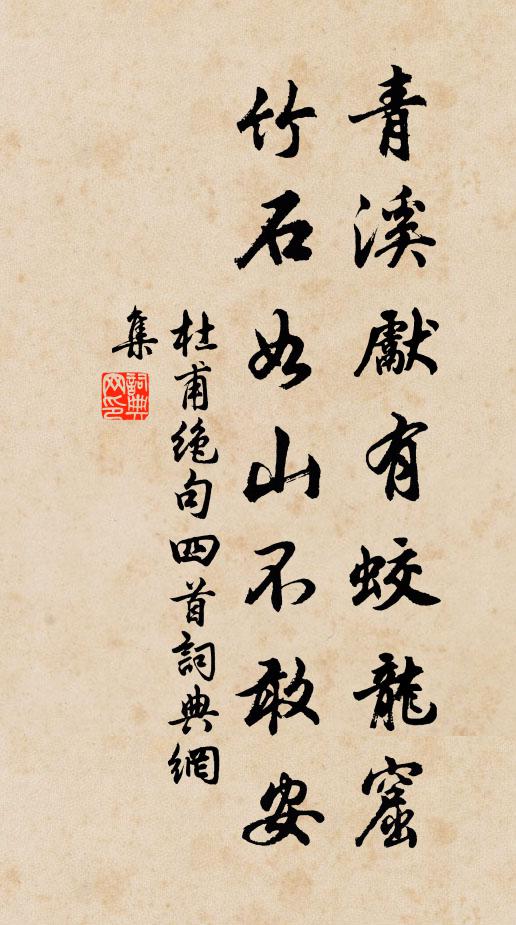 青溪獻有蛟龍窟
竹石如山不敢安
杜甫絶句四首詞典網
集
詞典
网印